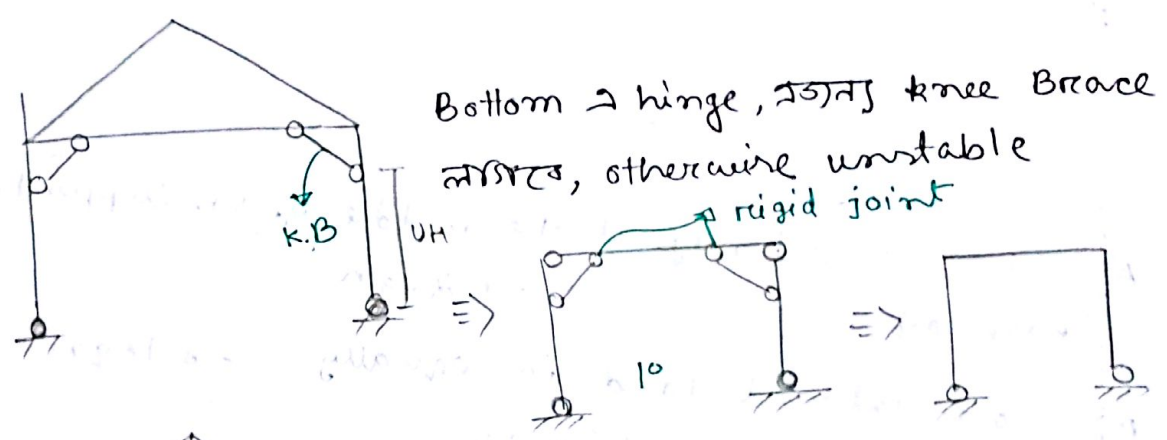 Bottom এ hinge, এজন্য knee Brace
লাগাতে, otherwise unstable
rigid joint
K.B
UH
1°